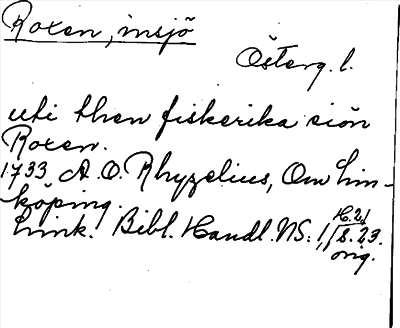 Roxen, insjö
Österg. l.
uti then fiskerika siön
Roxen.
1733 A. O. Rhyzelius, Om Lin-
köping.
Link. Bibl. Handl. NS: 1, S. 23.
H. 2,
orig.